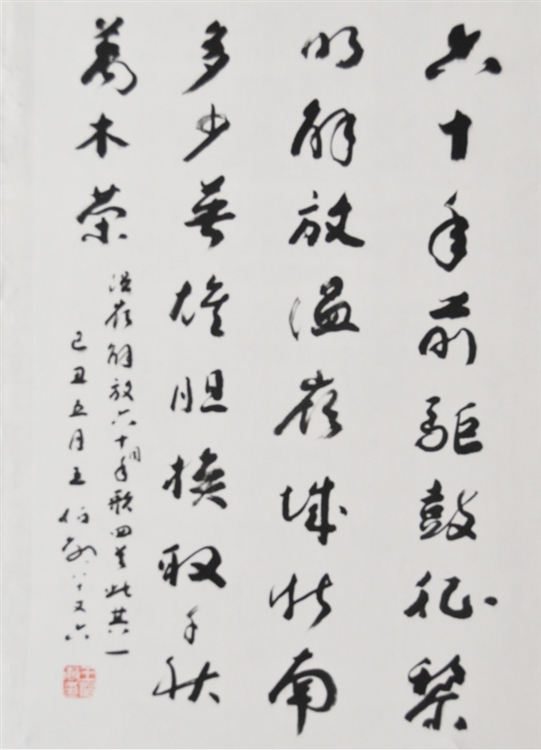 六十年前鼓征黎
明解放温嶺城南
多少英雄胆換取千秋
萬木荣
温嶺解放六十周年歌四首此其一
己丑五月王伯敏八十又六